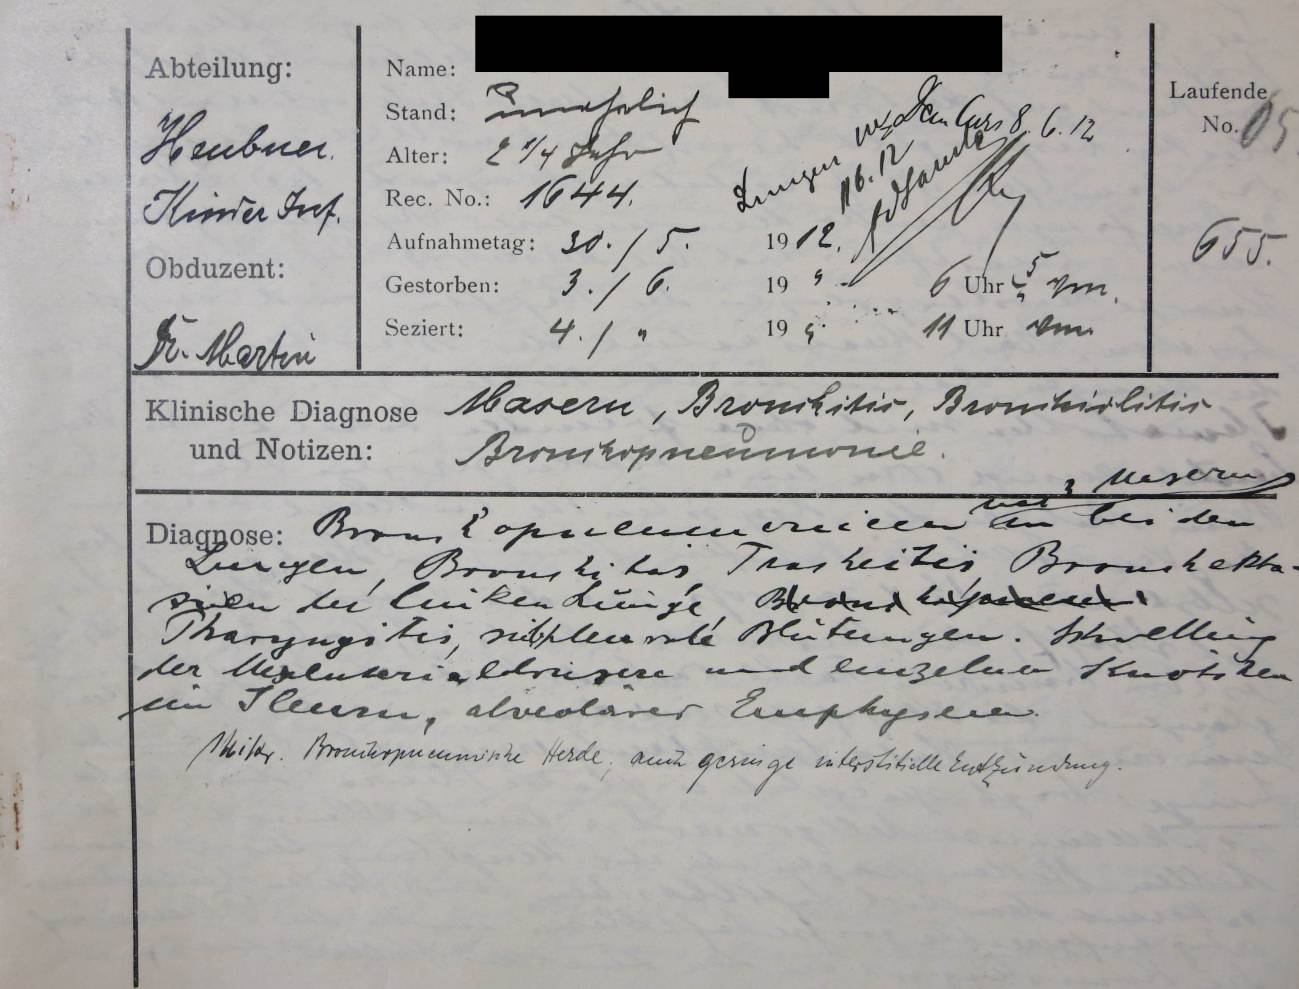 Abteilung:
Heubner.
Kinder Inf.
Obduzent:
Dr. Martin
Name:
Stand: unehelich
Alter: 2 1/4 Jahr
Rec. No.: 1644.
Aufnahmetag: 30. / 5. 1912.
Gestorben: 3. / 6. 19 " 6 Uhr 5 vm.
Seziert: 4. / " 19 " 11 Uhr vm
Lungen Dem Curs 8 6.12
Laufende
No. 05
655.
Klinische Diagnose Masern, Bronchitis, Bronchiolitis
und Notizen: Bronchopneumonie.
Masern
Diagnose: Bronchopneumonieen in beiden
Lungen, Bronchitis, Tracheitis Bronchekta-
sieen der linken Lunge,
Pharyngitis, subpleurale Blutungen. Schwellung
der Mesenterialdrüsen und einzelner Knötchen
im Ileum, alveolärer Emphysem.
Mikr. Bronchopneumonische Herde, auch geringe interstitielle Entzündung.